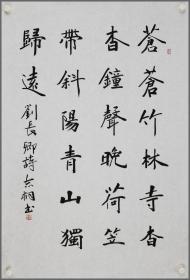 蒼蒼竹林寺杳
杳鐘聲晚荷笠
帶斜陽青山獨
歸遠 劉長卿詩